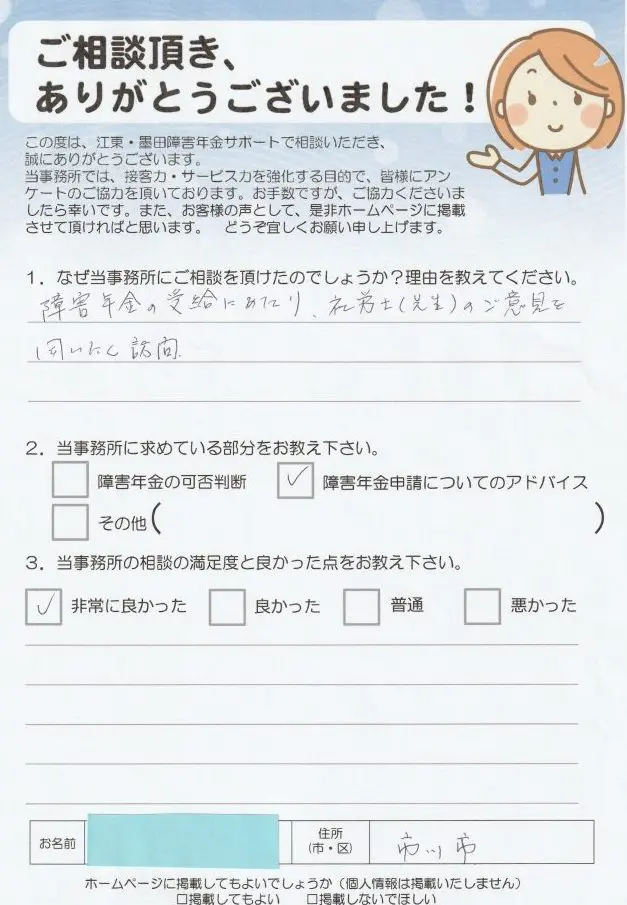 ご相談頂き、
ありがとうございました！
この度は、江東・墨田障害年金サポートで相談いただき、
誠にありがとうございます。
当事務所では、接客力・サービス力を強化する目的で、皆様にアン
ケートのご協力を頂いております。お手数ですが、ご協力くださいま
したら幸いです。また、お客様の声として、是非ホームページに掲載
させて頂ければと思います。　どうぞ宜しくお願い申し上げます。
1．なぜ当事務所にご相談を頂けたのでしょうか？理由を教えてください。
障害年金の受給にあたり、社労士(先生)のご意見を
伺いたく訪問.
2．当事務所に求めている部分をお教え下さい。
障害年金の可否判断　✓ 障害年金申請についてのアドバイス
その他（　）
3．当事務所の相談の満足度と良かった点をお教え下さい。
✓ 非常に良かった　良かった　普通　悪かった
お名前　住所（市・区）　市川市
ホームページに掲載してもよいでしょうか（個人情報は掲載いたしません）
□掲載してもよい　□掲載しないでほしい